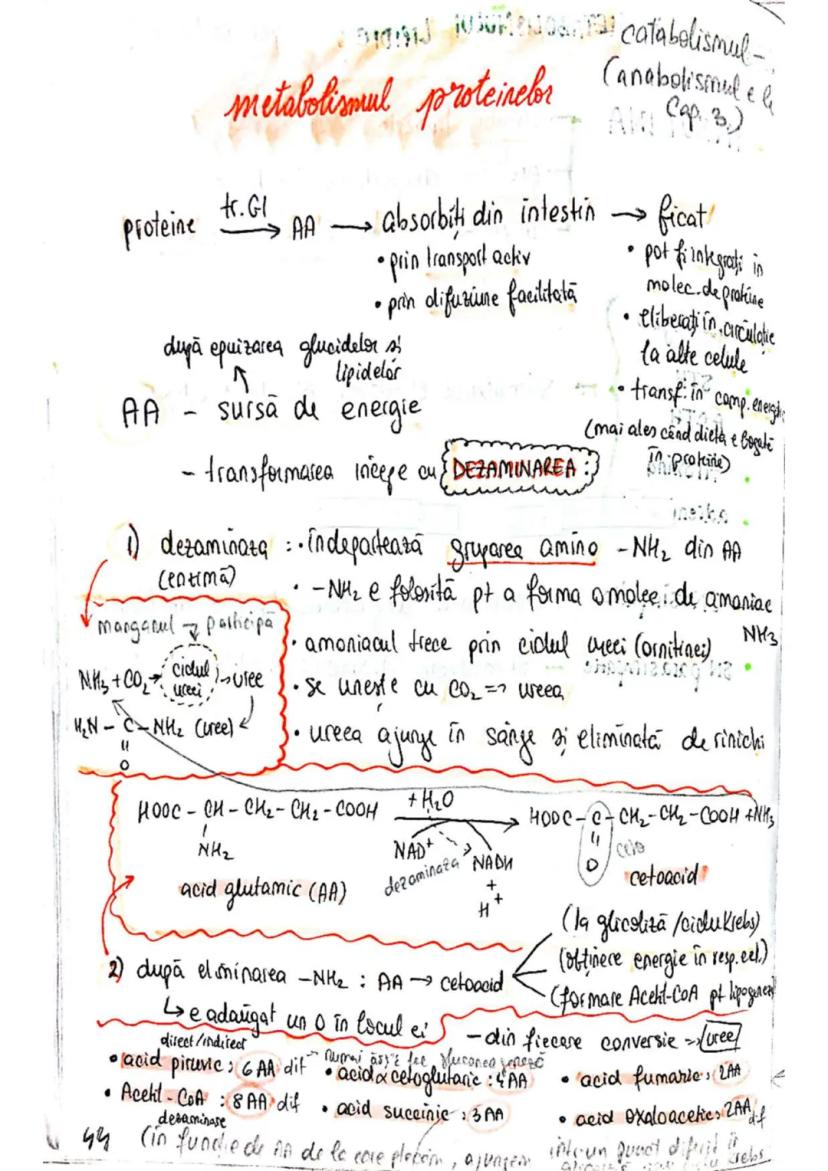 catabolismul -
(anabolismul e la
Cap. 3.)
metabolismul proteinelor
proteine tr.GI → AA → absorbiți din intestin → ficat
• prin transport activ
• prin difuziune facilitată
• pot fi integrați în
molec. de proteine
• eliberați în circulație
la alte celule
• transf. în comp. energ
(mai ales când dieta e bogată
în proteine)
după epuizarea glucidelor și
lipidelor
AA - sursă de energie
- transformarea începe cu DEZAMINAREA :
1) dezaminaza : • îndepartează gruparea amino -NH₂ din AA
(enzimă)
• -NH₂ e folosită pt a forma o molec. de amoniac
NH₃
• amoniacul trece prin ciclul ureei (ornitinei)
• se unește cu CO₂ => ureea
• ureea ajunge în sânge și eliminată de rinichi
manganul → participă
NH₃ + CO₂ → ciclul ureei → uree
H₂N - C - NH₂ (uree)
O
HOOC - CH - CH₂ - CH₂ - COOH +H₂O → HOOC - C - CH₂ - CH₂ - COOH + NH₃
NH₂
NAD⁺ dezaminaza NADH
+
H⁺
O
ceto
acid glutamic (AA)
cetoacid
2) după eliminarea -NH₂ : AA → cetoacid
(la glicoliză / ciclu Krebs)
(obținere energie în resp. cel.)
(formare Acetil-CoA pt lipogeneză
↳ e adăugat un O în locul ei
- din fiecare conversie → uree
direct/indirect
• acid piruvic : 6 AA dif
• Acetil-CoA : 8 AA dif
dezaminare
• acid α cetoglutaric : 4 AA
• acid succinic : 3 AA
• acid fumaric : 2AA
• acid oxaloacetic : 2AA dif
44 (în funcție de AA de la care plecăm, ajungem într-un punct diferit